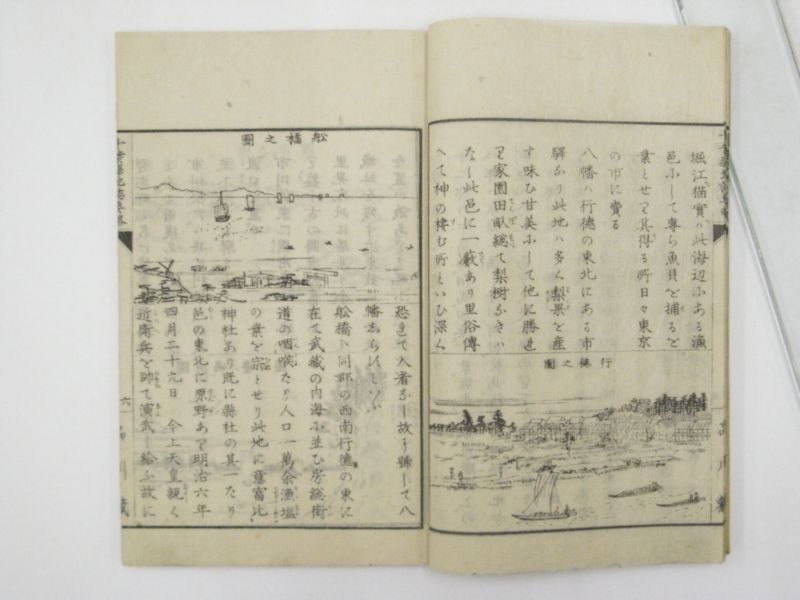 堀江猫實ハ此海辺ふある漁
邑ふして專ら魚貝を捕るを
業とせり其得る所日々東京
の市に賣る
八幡ハ行德の東北にある市
驛なり此地ハ多く梨果を産
す味ひ甘美ふして他に勝色
り家園田畝総て梨樹ならさハ
なし此邑に一藪あり里俗傳
へて神の棲む所といひ深く
行徳之圖
舩橋之圖
恐色て入者なし故に號して八
幡しらにといふ
舩橋ハ同郡の西南行德の東に
在て武藏の内海に並ひ房総街
道の咽喉たり人口一萬余漁塩
の業を宗とせり此地に意富比
神社あり既に縣社の其一たり
邑の東北に原野あり明治六年
四月二十九日 今上天皇親く
近衛兵を帥て演武 給ふ故に
六